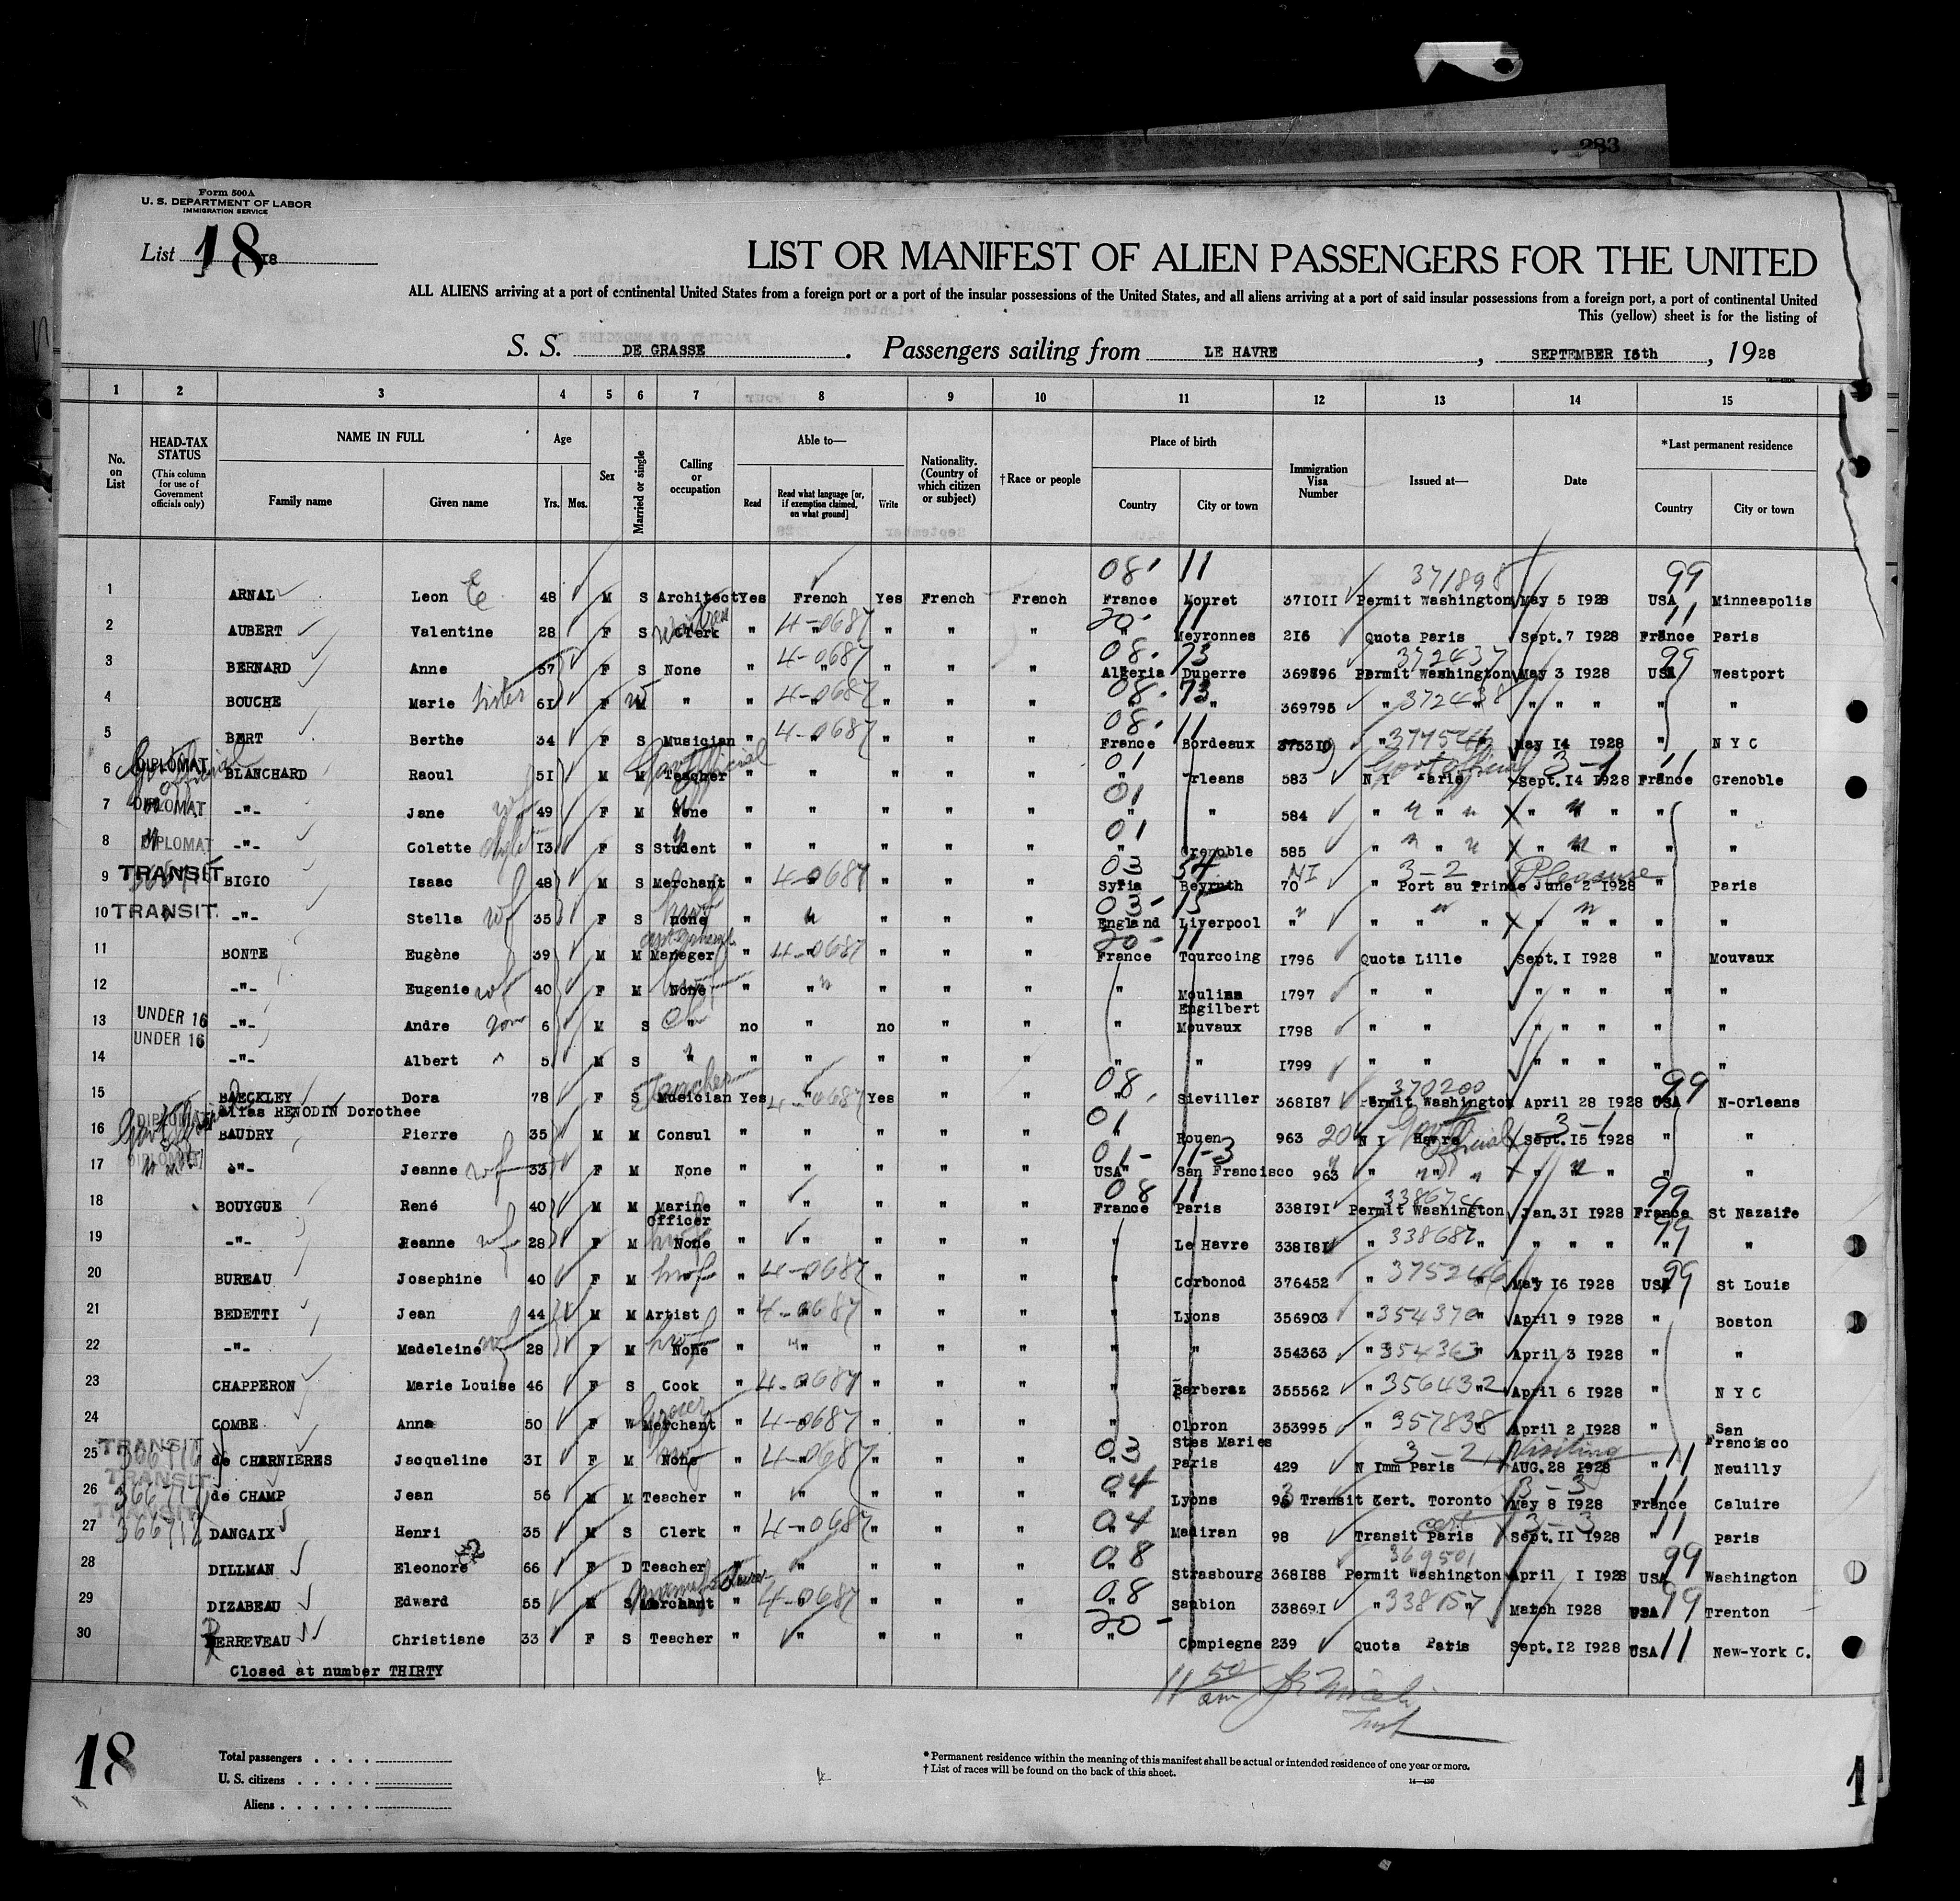 283
Form 500A
U. S. DEPARTMENT OF LABOR
IMMIGRATION SERVICE
List 18 18
LIST OR MANIFEST OF ALIEN PASSENGERS FOR THE UNITED
ALL ALIENS arriving at a port of continental United States from a foreign port or a port of the insular possessions of the United States, and all aliens arriving at a port of said insular possessions from a foreign port, a port of continental United
This (yellow) sheet is for the listing of
S. S. DE GRASSE . Passengers sailing from LE HAVRE , SEPTEMBER 15th , 1928
1 2 3 4 5 6 7 8 9 10 11 12 13 14 15
No. on List
HEAD-TAX STATUS (This column for use of Government officials only)
NAME IN FULL Family name Given name
Age Yrs. Mos.
Sex
Married or single
Calling or occupation
Able to— Read Read what language [or, if exemption claimed, on what ground] Write
Nationality. (Country of which citizen or subject)
†Race or people
Place of birth Country City or town
Immigration Visa Number
Issued at—
Date
*Last permanent residence Country City or town
08 11 371898 99
1 ARNAL Leon E 48 M S Architect Yes French Yes French French France Mouret 371011 Permit Washington May 5 1928 USA Minneapolis
2 AUBERT Valentine 28 F S Clerk " 4-0687 " " " 20- " 11 Meyronnes 216 Quota Paris Sept. 7 1928 France 11 Paris
3 BERNARD Anne 57 F S None " 4-0687 " " " 08 Algeria 73 Duperre 369896 372437 Permit Washington May 3 1928 USA 99 Westport
4 BOUCHE Marie sister 61 F W " " 4-0687 " " " 08 " 73 " 369795 " 372438 " " " " " "
5 BERT Berthe 34 F S Musician " 4-0687 " " " 08 France 11 Bordeaux 375310 " " May 14 1928 " N Y C
6 DIPLOMAT BLANCHARD Raoul 51 M M Teacher Govt Official " " " " " 01 " Orleans 583 N I Paris Govt Official 3-1 Sept. 14 1928 France 11 Grenoble
7 DIPLOMAT -"- Jane wf 49 F M None " " " " " 01 " " 584 " " " " " " " "
8 DIPLOMAT -"- Colette 13 F S Student " " " " " 01 " Grenoble 585 " " " " " " " "
9 TRANSIT BIGIO Isaac 48 M S Merchant " 4-0687 " " " 03 Syria 54 Beyruth NI 70 " 3-2 Port au Prince Pleasure June 2 1928 " Paris
10 TRANSIT -"- Stella wf 35 F S none hwf " " " " " 03- England 15 Liverpool " " " " " " "
11 BONTE Eugène 39 M M Maneger " 4-0687 " " " 20- France 11 Tourcoing 1796 Quota Lille Sept. 1 1928 " Mouvaux
12 -"- Eugenie wf 40 F M None hwf " " " " " " Moulins Engilbert 1797 " " " " " " "
13 UNDER 16 -"- Andre son 6 M S " ch no " no " " " Mouvaux 1798 " " " " " " "
14 UNDER 16 -"- Albert " 5 M S " " " " " " " " 1799 " " " " " " "
15 BAECKLEY Dora 78 F S Musician Teacher Yes " 4-0687 Yes " " 08 " Sieviller 368187 370200 Permit Washington April 28 1928 USA 99 N-Orleans
alias RENODIN Dorothee
16 DIPLOMAT BAUDRY Pierre 35 M M Consul " " " " " 01 " Rouen 963 20 N I Havre Govt Official 3-1 Sept. 15 1928 " "
17 DIPLOMAT -"- Jeanne wf 33 F M None " " " " " 01- USA 11-3 San Francisco 963 " " " " " " "
18 BOUYGUE René 40 M M Marine Officer " " " " " 08 France 11 Paris 338191 Permit Washington Jan. 31 1928 France 99 St Nazaire
19 -"- Jeanne wf 28 F M None hwf " " " " " " Le Havre 338181 " 338687 " " " " " 99 "
20 BUREAU Josephine 40 F M hwf " 4-0687 " " " " Corbonod 376452 " 375246 " May 16 1928 USA 99 St Louis
21 BEDETTI Jean 44 M M Artist " 4-0687 " " " " Lyons 356903 " 354370 " April 9 1928 " Boston
22 -"- Madeleine wf 28 F M None hwf " " " " " " " 354363 " 354363 " April 3 1928 " "
23 CHAPPERON Marie Louise 46 F S Cook " 4-0687 " " " " Barberaz 355562 " 356432 " April 6 1928 " N Y C
24 COMBE Anna 50 F W Merchant Grocer " 4-0687 " " " " Oloron Stes Maries 353995 " 357838 April 2 1928 " San Francisco
25 TRANSIT de CHARNIÈRES Jacqueline 31 F M None hwf " 4-0687 " " " 03 " Paris 429 N Imm Paris 3-2 Visiting AUG. 28 1928 " 11 Neuilly
26 TRANSIT de CHAMP Jean 56 M M Teacher " " " " " 04 " Lyons 96 Transit Cert. Toronto 3-3 May 8 1928 France 11 Caluire
27 TRANSIT DANGAIX Henri 35 M S Clerk " 4-0687 " " " 04 " Madiran 98 Transit Paris cert 3-3 Sept. 11 1928 " 11 Paris
28 DILLMAN Eleonore 66 F D Teacher " " " " " 08 " Strasbourg 368188 369501 Permit Washington April 1 1928 USA 99 Washington
29 DIZABEAU Edward 55 M S Merchant " 4-0687 " " " 08 " Saubion 338691 " 338157 " March 1928 USA 99 Trenton
30 PERREVEAU Christiane 33 F S Teacher " " " " " 20- " Compiegne 239 Quota Paris Sept. 12 1928 USA 11 New-York C.
Closed at number THIRTY
11 50 am
18
Total passengers . . . .
U. S. citizens . . . . .
Aliens . . . . . .
* Permanent residence within the meaning of this manifest shall be actual or intended residence of one year or more.
† List of races will be found on the back of this sheet.
14—430
1